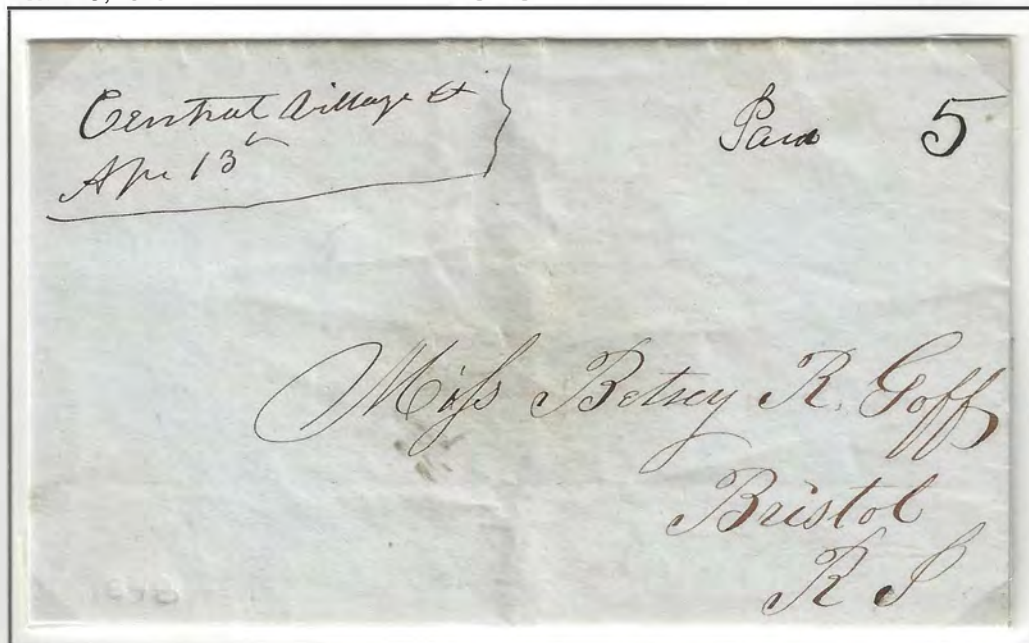 Central Village Ct
Apr 13
Paid 5
Miss Betsey R. Goff
Bristol
R I